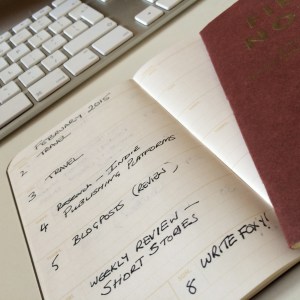 FEBRUARY 2015
2 TRAVEL
3 TRAVEL
4 RESEARCH – INDIE
PUBLISHING PLATFORMS
5 BLOGPOSTS (REVIEW)
WEEKLY REVIEW –
SHORT STORIES
8 WRITE FOXY!